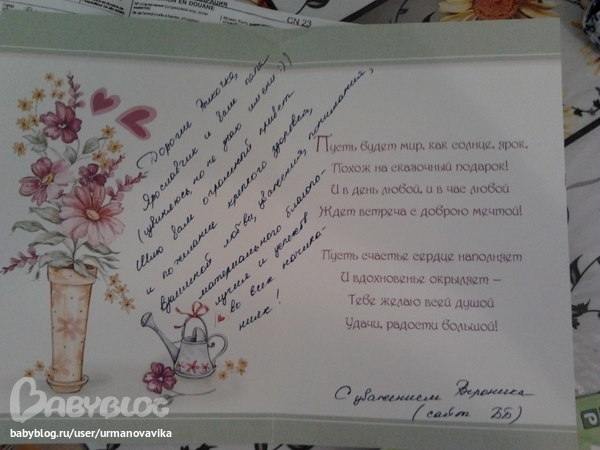 CN 23
EN DOUANE
Дорогие Викочка,
Ярославчик и ваш папа
(извиняюсь, но не знаю имени :))
Шлю вам огромный привет
и пожелания крепкого здоровья,
взаимной любви, уважения, понимания,
материального благопо-
лучия и успехов
во всех начина-
ниях!
Пусть будет мир, как солнце, ярок,
Похож на сказочный подарок!
И в день любой, и в час любой
Ждет встреча с доброю мечтой!
Пусть счастье сердце наполняет
И вдохновенье окрыляет –
Тебе желаю всей душой
Удачи, радости большой!
С уважением Вероника
(сайт ББ)
BABYBLOG
babyblog.ru/user/urmanovavika